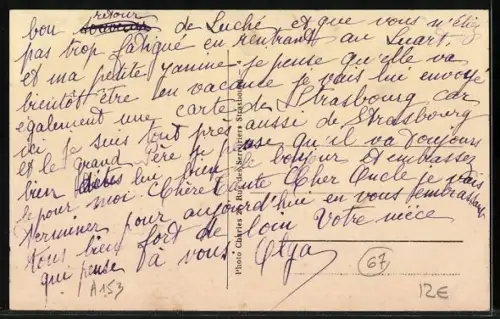 retour
bon souvenir de Luché et que vous n'étiez
pas trop fatigué en rentrant au Luart.
et ma petite Yanine je pense qu'elle va
bientôt être en vacance je vais lui envoyé
egalement une carte de Strasbourg car
ici je suis tout près aussi de Strasbourg
et le grand Père je pense qu'il va toujours
bien dites lui bien le bonjour et embrassez
le pour moi Chère tante Cher Oncle je vais
terminer pour aujourd'hui en vous embrassant
tous bien fort de loin Votre nièce
qui pense à vous Olga
A153
67
12E